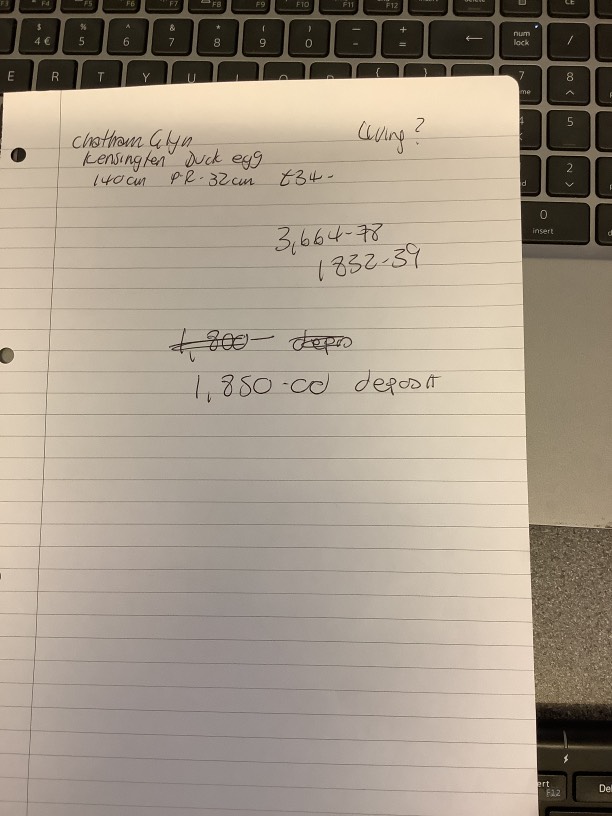 F3 F4 F5 F6 F7 F8 F9 F10 F11 F12
$ 4 € % 5 ^ 6 & 7 * 8 ( 9 ) 0 _ - + = ← num lock /
E R T Y U 7 8
5
2
0 insert
Chatham Glyn Living?
Kensington Duck egg
140cm P.R-32cm £34-
3,664-78
1832-39
1,800- depos
1,850-00 deposit
F12 Del